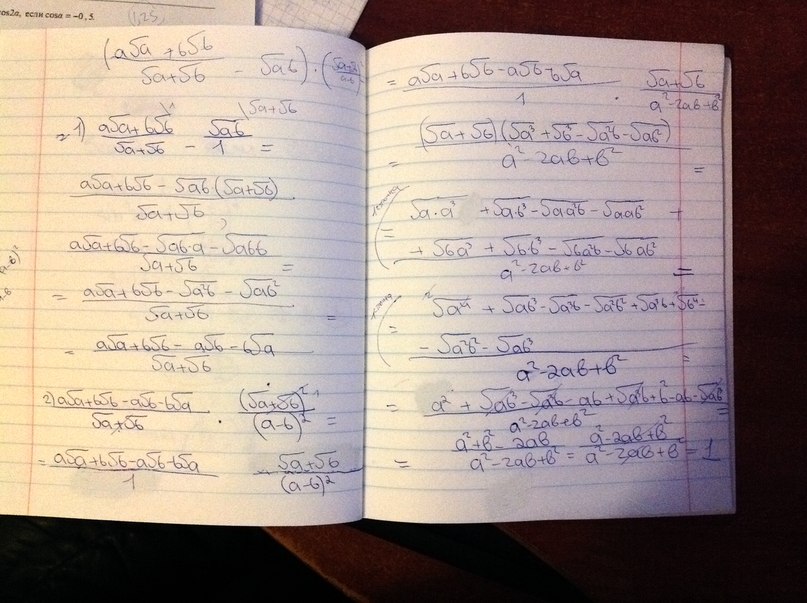 cos2a, если cosa = -0,5.
(1,25)
(a√a + b√b / √a+√b - √ab) · (√a+√b / a-b)²
= 1) a√a+b√b / √a+√b \¹ - √ab / 1 \√a+√b =
a√a+b√b - √ab (√a+√b) / √a+√b
a√a+b√b - √ab·a - √abb / √a+√b =
= a√a+b√b - √a²b - √ab² / √a+√b =
= a√a+b√b - a√b - b√a / √a+√b
2) a√a+b√b - a√b - b√a / √a+√b · (√a+√b)² / (a-b)² =
= a√a+b√b - a√b - b√a / 1 · √a+√b / (a-b)²
= a√a+b√b - a√b - b√a / 1 · √a+√b / a²-2ab+b²
= (√a+√b)(√a³+√b³-√a²b-√ab²) / a²-2ab+b² =
= √a·a³ + √a·b³ - √aa²b - √aab² +
+ √ba³ + √b·b³ - √ba²b - √bab² / a²-2ab+b² =
= √a⁴ + √ab³ - √a³b - √a²b² + √a³b + √b⁴ =
- √a²b² - √ab³ / a²-2ab+b² =
= a² + √ab³ - √a³b - ab + √a³b + b² - ab - √ab³ / a²-2ab+b² =
= a²+b²-2ab / a²-2ab+b² = a²-2ab+b² / a²-2ab+b² = 1